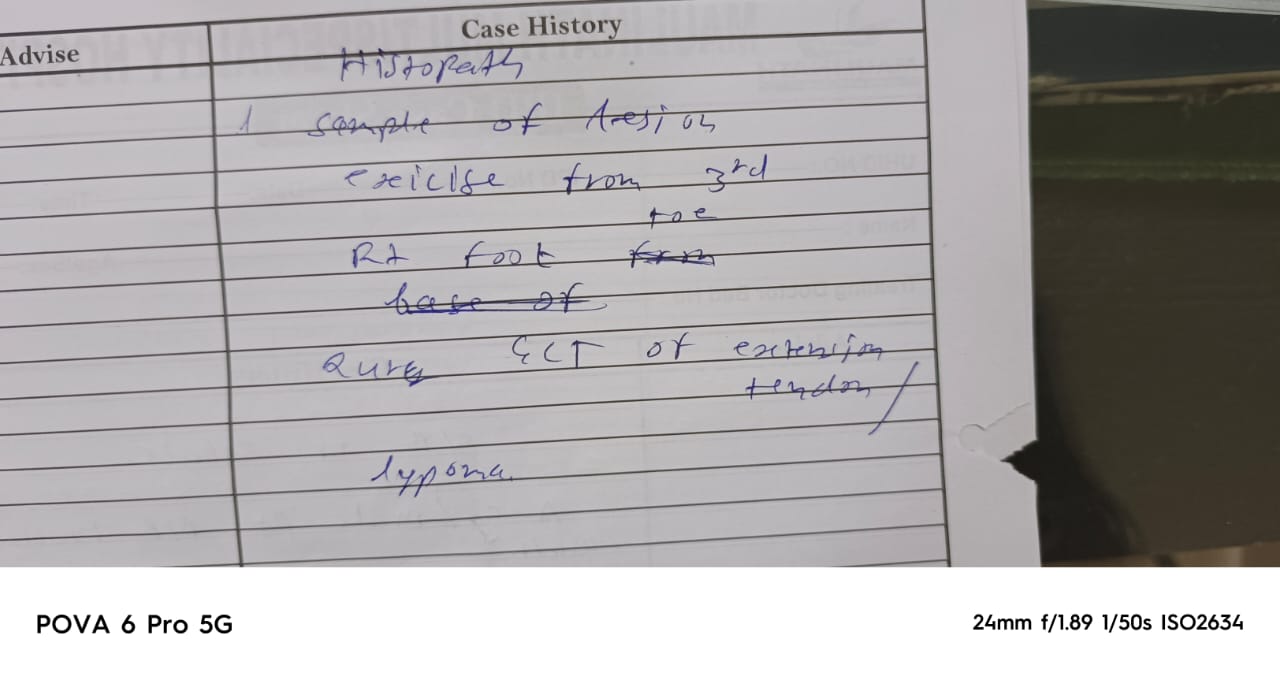 Case History
Advise
Histopath
1 sample of lesion
exicise from 3rd
toe
Rt foot from
base of
GCT of extension
tendon/
lypoma
POVA 6 Pro 5G
24mm f/1.89 1/50s ISO2634